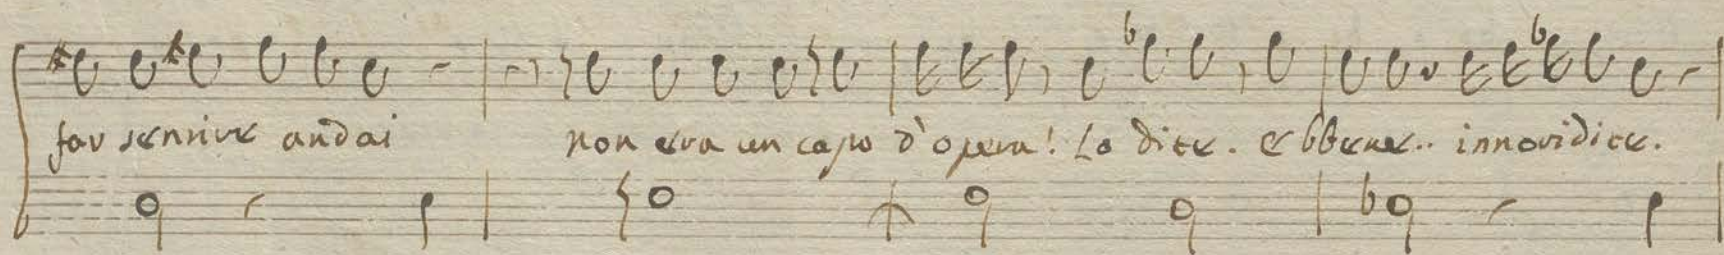 far sentire andai non era un capo d'opera! Lo dite. ebbene.. inno vi dite.